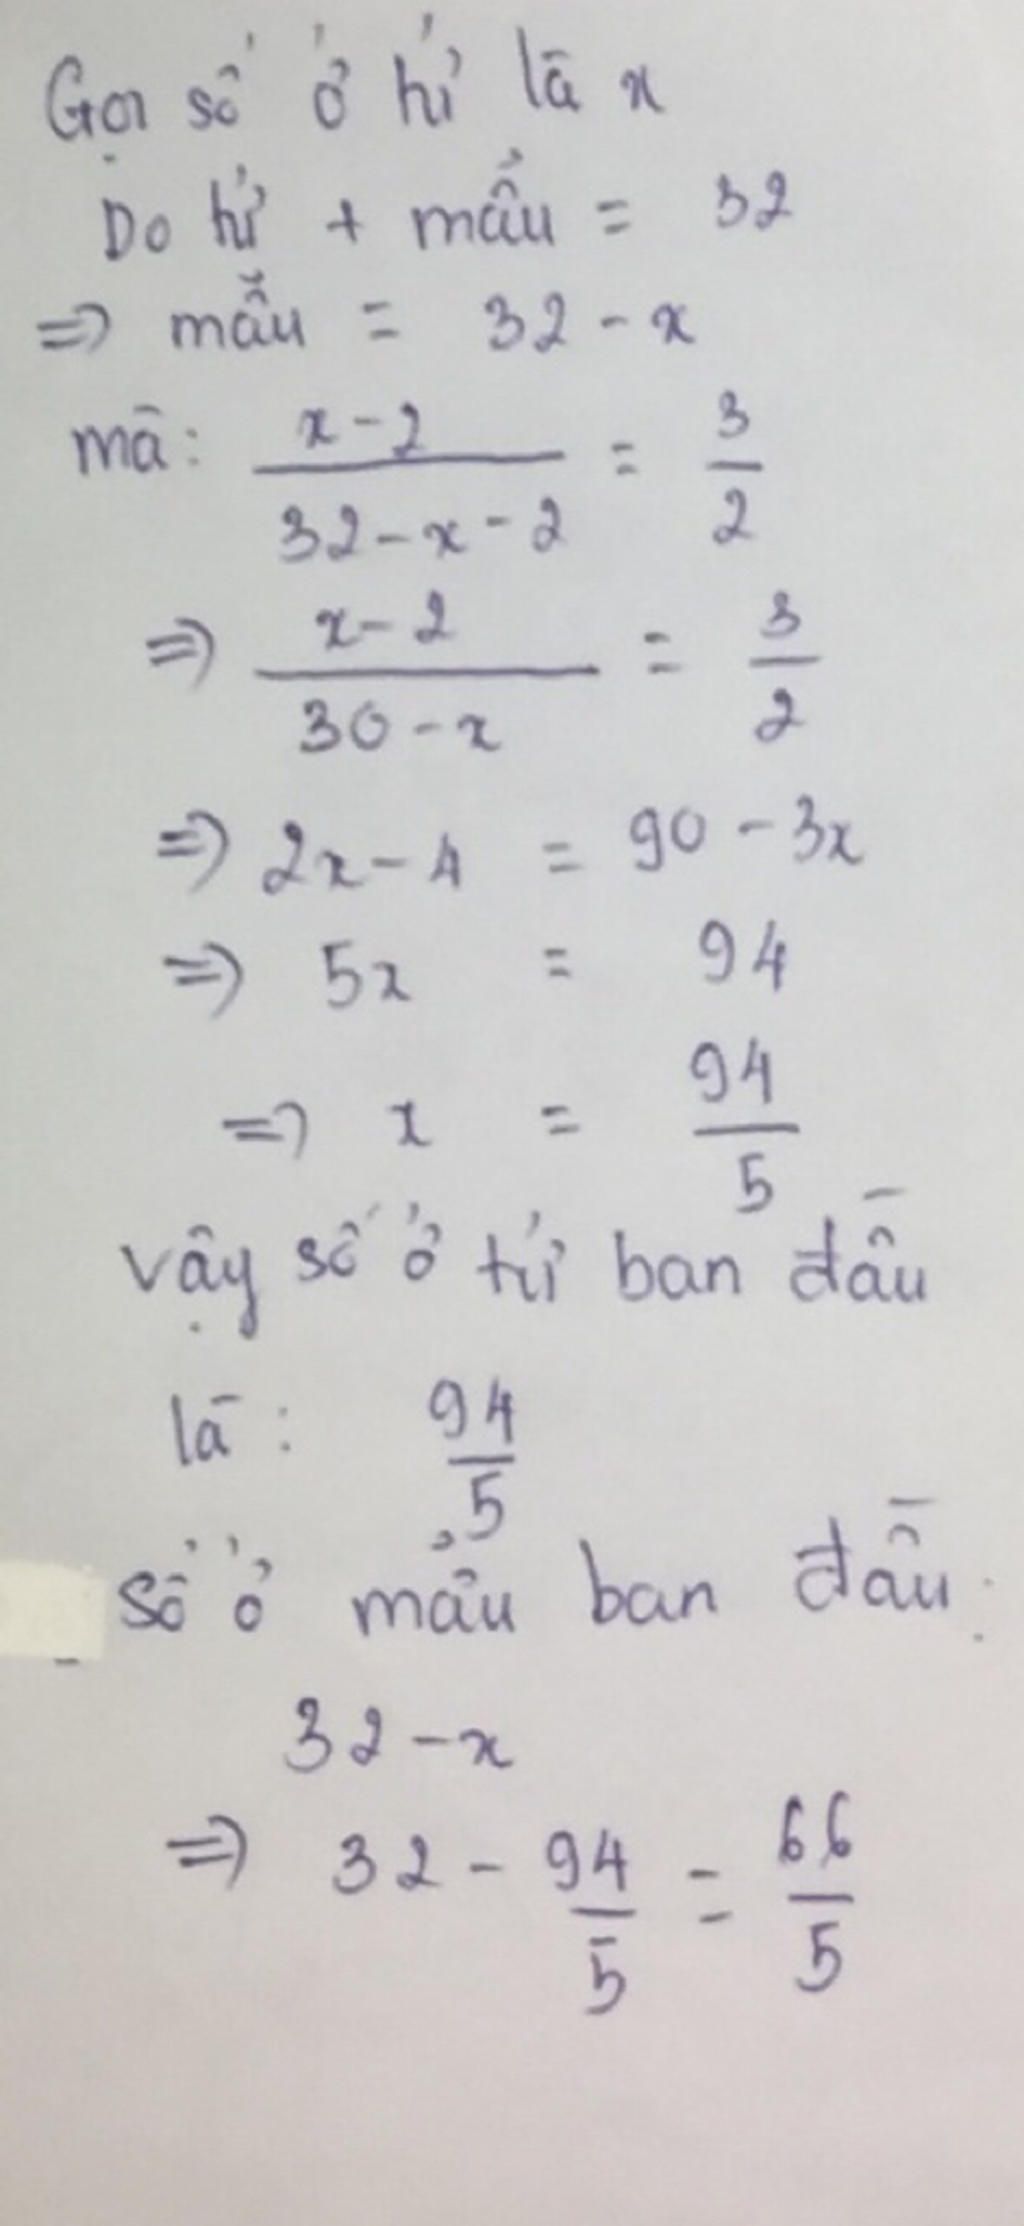 Gọi số ở tử là x
Do tử + mẫu = 32
=> mẫu = 32 - x
mà: (x-2)/(32-x-2) = 3/2
=> (x-2)/(30-x) = 3/2
=> 2x-4 = 90-3x
=> 5x = 94
=> x = 94/5
Vậy số ở tử ban đầu
là: 94/5
Số ở mẫu ban đầu:
32-x
=> 32 - 94/5 = 66/5